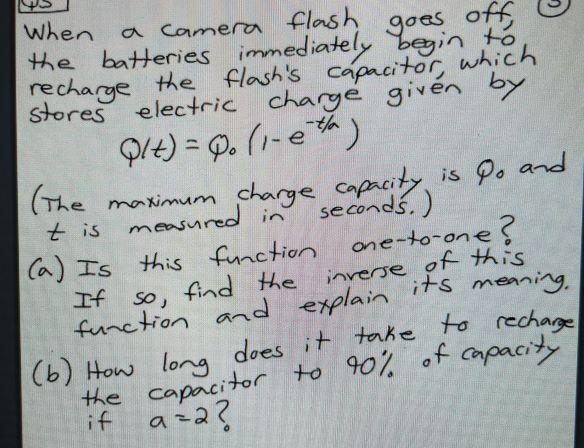 Q5
When a camera flash goes off,
the batteries immediately begin to
recharge the flash's capacitor, which
stores electric charge given by
Q(t) = Q₀ (1-e^(-t/a))
(The maximum charge capacity is Q₀ and
t is measured in seconds.)
(a) Is this function one-to-one?
If so, find the inverse of this
function and explain its meaning.
(b) How long does it take to recharge
the capacitor to 90% of capacity
if a=2?